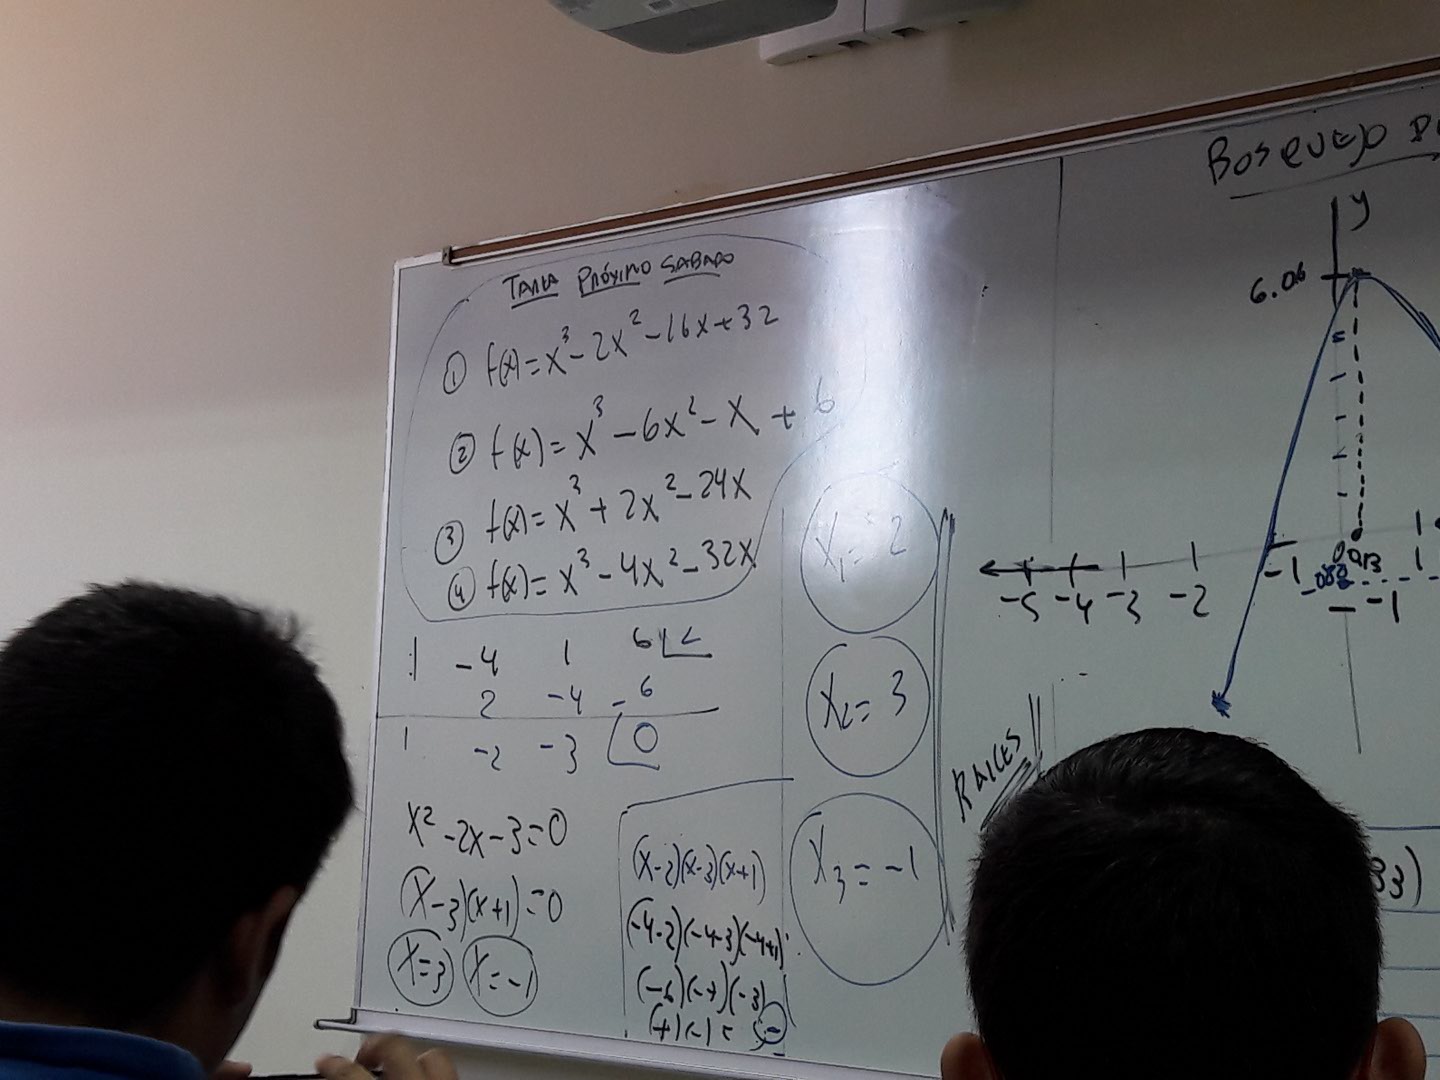 TAREA PRÓXIMO SABADO
① f(x) = x³ - 2x² - 16x + 32
② f(x) = x³ - 6x² - x + 6
③ f(x) = x³ + 2x² - 24x
④ f(x) = x³ - 4x² - 32x
1 -4 1 6
2 -4 -6
1 -2 -3 0
x² - 2x - 3 = 0
(x-3)(x+1) = 0
x = 3 x = -1
(x-2)(x-3)(x+1)
(-4-2)(-4-3)(-4+1)
(-6)(-7)(-3)
(+)(-) = -
x₁ = 2
x₂ = 3
x₃ = -1
RAICES!!
BOSQUEJO
y
6.06
-5 -4 -3 -2 -1 1
-1